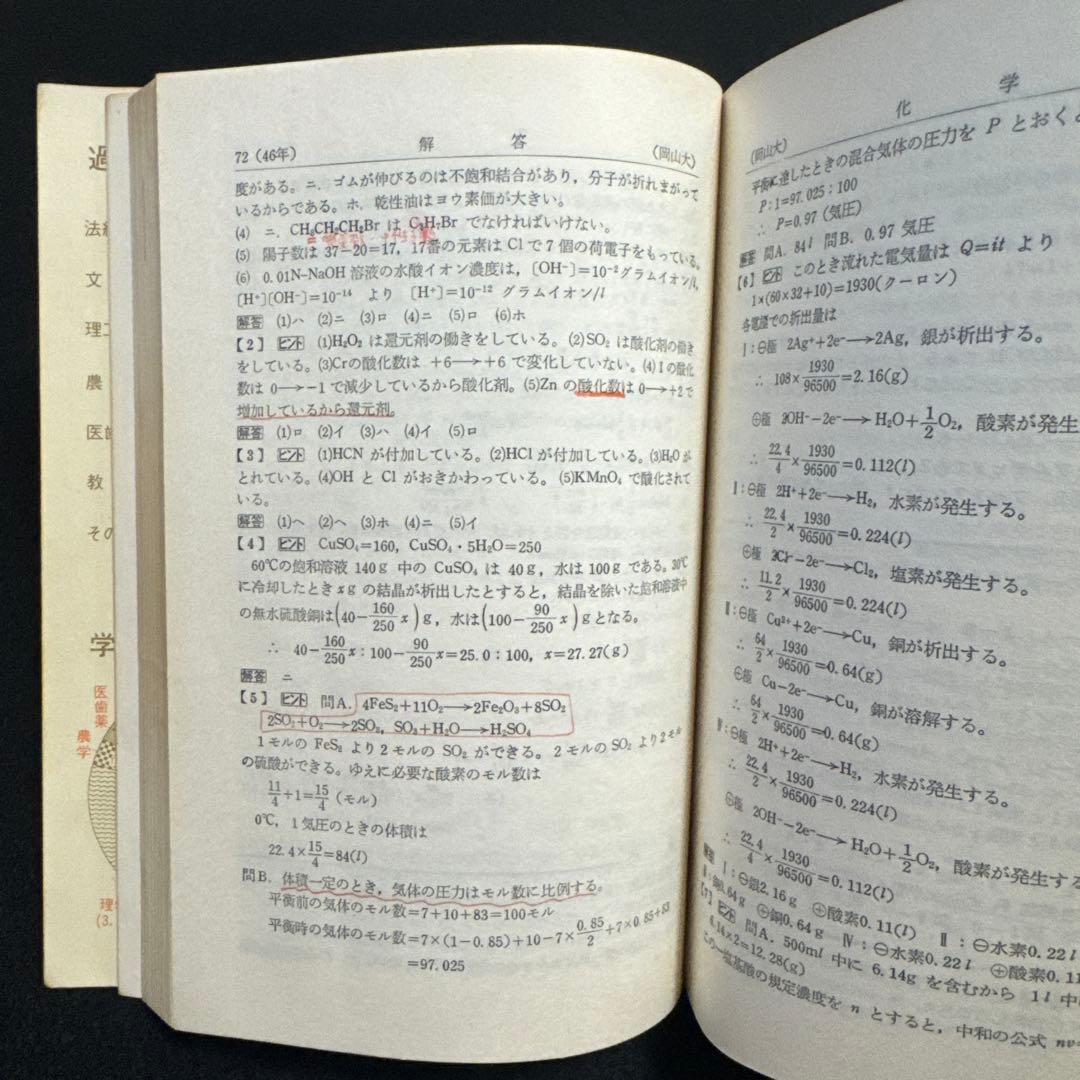 過
法
文
理工
農
医歯
教
その
学
医歯薬
農学
理
(3.
72 (46年)
解 答
(岡山大)
度がある。ニ．ゴムが伸びるのは不飽和結合があり，分子が折れまがって
いるからである。ホ．乾性油はヨウ素価が大きい。
(4) ニ．CH₃CH₂CH₂Br は C₃H₇Br でなければいけない。
(5) 陽子数は 37−20=17，17番の元素は Cl で 7 個の荷電子をもっている。
(6) 0.01N-NaOH 溶液の水酸イオン濃度は，[OH⁻]=10⁻²グラムイオン/l，
[H⁺][OH⁻]=10⁻¹⁴ より [H⁺]=10⁻¹² グラムイオン/l
解答 (1)ハ (2)ニ (3)ロ (4)ニ (5)ロ (6)ホ
【2】 ヒント (1)H₂O₂ は還元剤の働きをしている。(2)SO₂ は酸化剤の働き
をしている。(3)Crの酸化数は +6→+6 で変化していない。(4) I の酸化
数は 0→−1 で減少しているから酸化剤。(5)Zn の酸化数は 0→+2 で
増加しているから還元剤。
解答 (1)ロ (2)イ (3)ハ (4)イ (5)ロ
【3】 ヒント (1)HCN が付加している。(2)HCl が付加している。(3)H₂O が
とれている。(4)OH と Cl がおきかわっている。(5)KMnO₄ で酸化されて
いる。
解答 (1)ヘ (2)ヘ (3)ホ (4)ニ (5)イ
【4】 ヒント CuSO₄=160，CuSO₄・5H₂O=250
60℃の飽和溶液 140g 中の CuSO₄ は 40g，水は 100g である。30℃
に冷却したとき xg の結晶が析出したとすると，結晶を除いた飽和溶液中
の無水硫酸銅は(40−160/250 x)g，水は(100−90/250 x)g となる。
∴ 40−160/250 x : 100−90/250 x=25.0 : 100，x=27.27(g)
解答 ニ
【5】 ヒント 問A．4FeS₂+11O₂→2Fe₂O₃+8SO₂
2SO₂+O₂→2SO₃，SO₃+H₂O→H₂SO₄
1モルの FeS₂ より 2 モルの SO₂ ができる。2 モルの SO₂ より 2 モル
の硫酸ができる。ゆえに必要な酸素のモル数は
11/4+1=15/4 (モル)
0℃，1 気圧のときの体積は
22.4×15/4=84(l)
問B．体積一定のとき，気体の圧力はモル数に比例する。
平衡前の気体のモル数=7+10+83=100モル
平衡時の気体のモル数=7×(1−0.85)+10−7×0.85/2+7×0.85+83
=97.025
化 学
(岡山大)
平衡に達したときの混合気体の圧力を P とおくと
P : 1=97.025 : 100
P=0.97 (気圧)
解答 問A．84l 問B．0.97 気圧
【6】 ヒント このとき流れた電気量は Q=it より
1×(60×32+10)=1930(クーロン)
各電極での折出量は
Ⅰ：⊖極 2Ag⁺+2e⁻→2Ag，銀が析出する。
∴ 108×1930/96500=2.16(g)
⊕極 2OH⁻−2e⁻→H₂O+1/2O₂，酸素が発生
∴ 22.4/4×1930/96500=0.112(l)
Ⅱ：⊖極 2H⁺+2e⁻→H₂，水素が発生する。
∴ 22.4/2×1930/96500=0.224(l)
⊕極 2Cl⁻−2e⁻→Cl₂，塩素が発生する。
∴ 11.2/2×1930/96500=0.224(l)
Ⅲ：⊖極 Cu²⁺+2e⁻→Cu，銅が析出する。
∴ 64/2×1930/96500=0.64(g)
⊕極 Cu−2e⁻→Cu，銅が溶解する。
∴ 64/2×1930/96500=0.64(g)
Ⅳ：⊖極 2H⁺+2e⁻→H₂，水素が発生する。
∴ 22.4/2×1930/96500=0.224(l)
⊕極 2OH⁻−2e⁻→H₂O+1/2O₂，酸素が発生する
∴ 22.4/4×1930/96500=0.112(l)
解答 Ⅰ：⊖銀2.16 g ⊕酸素0.11(l) Ⅱ：⊖水素0.22l
Ⅲ：銅0.64 g ⊕銅0.64 g Ⅳ：⊖水素0.22l ⊕酸素0.11
【7】 ヒント 問A．500ml 中に 6.14g を含むから 1l 中に
4.14×2=12.28(g)
この一塩基酸の規定濃度を n とすると，中和の公式 nv=